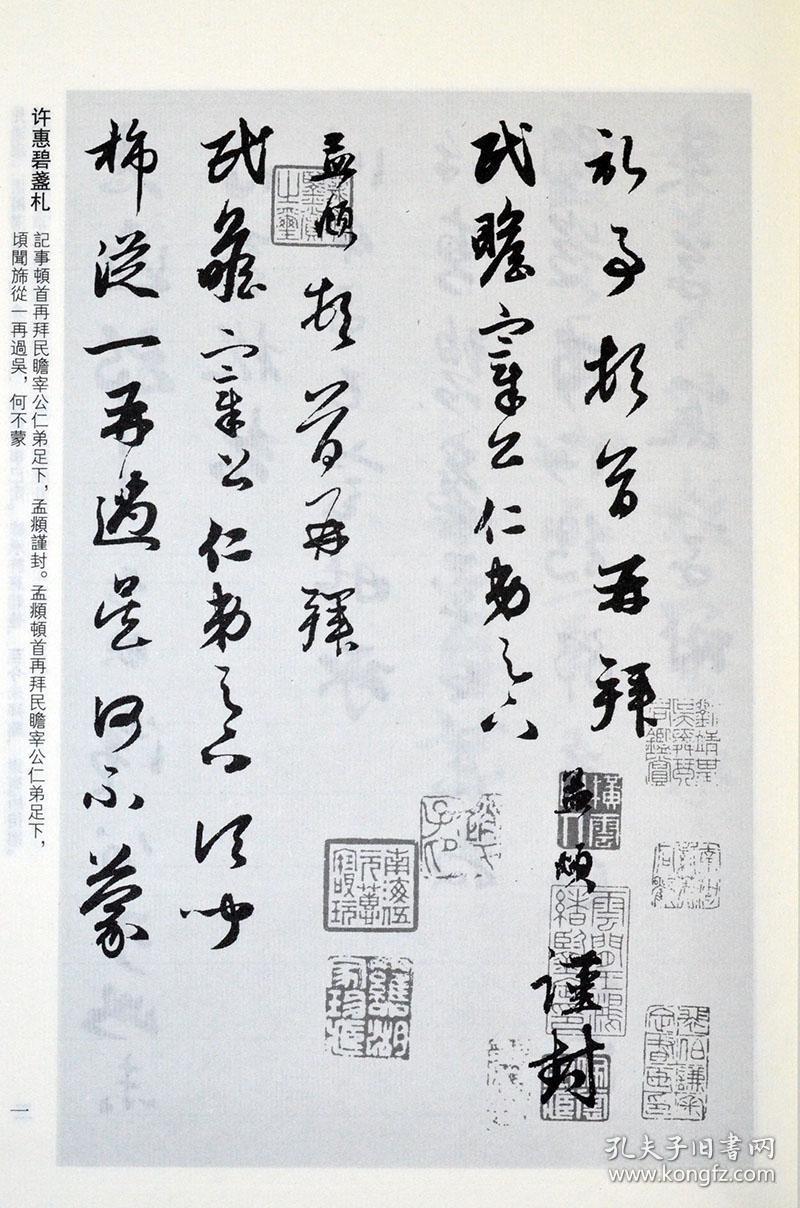 许惠碧盏札
記事頓首再拜民瞻宰公仁弟足下，孟頫謹封。孟頫頓首再拜民瞻宰公仁弟足下，
頃聞斾從一再過吳，何不蒙
記事頓首再拜
民瞻宰公仁弟足下
孟頫謹封
孟頫頓首再拜
民瞻宰公仁弟足下頃聞
斾從一再過吳何不蒙
南海伍元蕙寶玩
一
孔夫子旧书网
www.kongfz.com